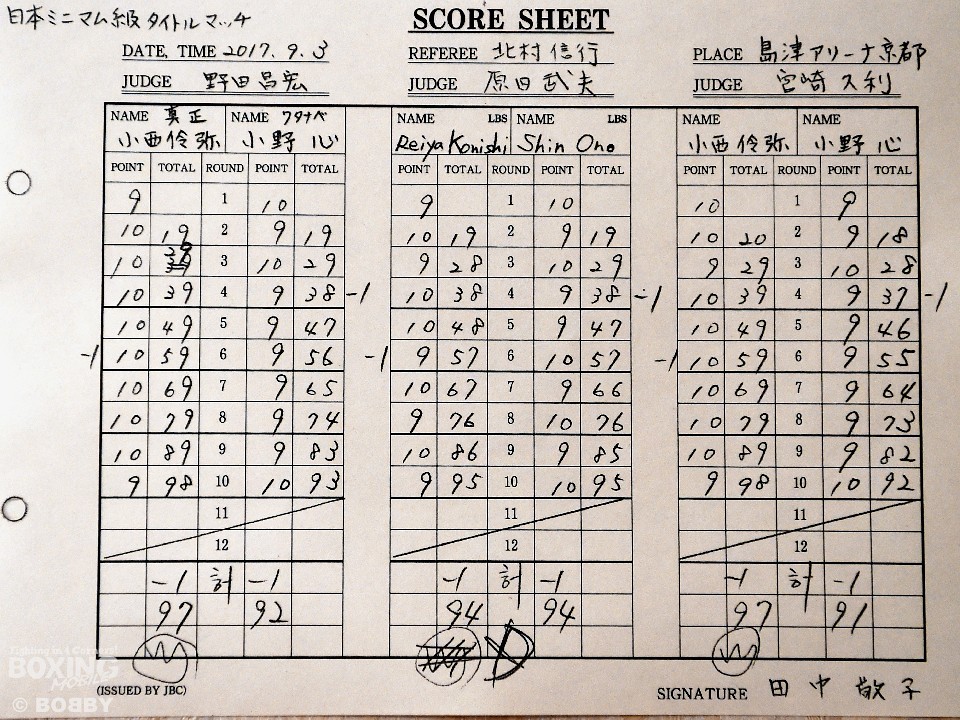 日本ミニマム級タイトルマッチ
SCORE SHEET
DATE, TIME 2017. 9. 3 REFEREE 北村信行 PLACE 島津アリーナ京都
JUDGE 野田昌宏 JUDGE 原田武夫 JUDGE 宮崎久利
NAME 真正 NAME ワタナベ NAME LBS NAME LBS NAME NAME
小西伶弥 小野心 Reiya Konishi Shin Ono 小西伶弥 小野心
POINT TOTAL ROUND POINT TOTAL POINT TOTAL ROUND POINT TOTAL POINT TOTAL ROUND POINT TOTAL
9 1 10 9 1 10 10 1 9
10 19 2 9 19 10 19 2 9 19 10 20 2 9 18
10 29 3 10 29 9 28 3 10 29 9 29 3 10 28
10 39 4 9 38 -1 10 38 4 9 38 -1 10 39 4 9 37 -1
10 49 5 9 47 10 48 5 9 47 10 49 5 9 46
-1 10 59 6 9 56 -1 9 57 6 10 57 -1 10 59 6 9 55
10 69 7 9 65 10 67 7 9 66 10 69 7 9 64
10 79 8 9 74 9 76 8 10 76 10 79 8 9 73
10 89 9 9 83 10 86 9 9 85 10 89 9 9 82
9 98 10 10 93 9 95 10 10 95 9 98 10 10 92
11 11 11
12 12 12
-1 計 -1 -1 計 -1 -1 計 -1
97 92 94 94 97 91
W D W
Fishing in 4 Corners!
BOXING
MOBILE
(ISSUED BY JBC) SIGNATURE 田中敬子
© BOBBY